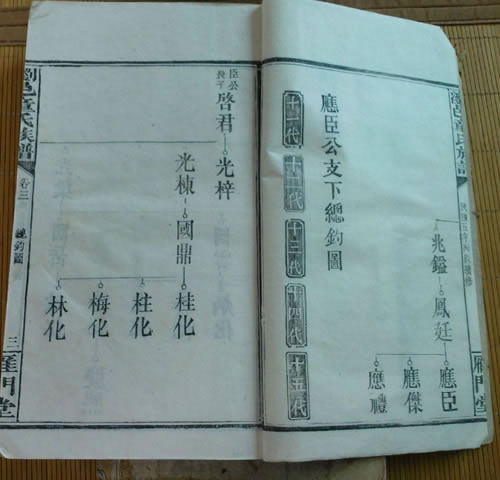 兆鎰
鳳廷
應臣
應傑
應禮
應臣公支下總鈞圖
十一代
十二代
十三代
十四代
十五代
雁門堂
臣公
長子
啓君
光梓
光棟
國鼎
桂化
柱化
梅化
林化
瀏邑童氏族譜
卷三
總鈞圖
三
雁門堂